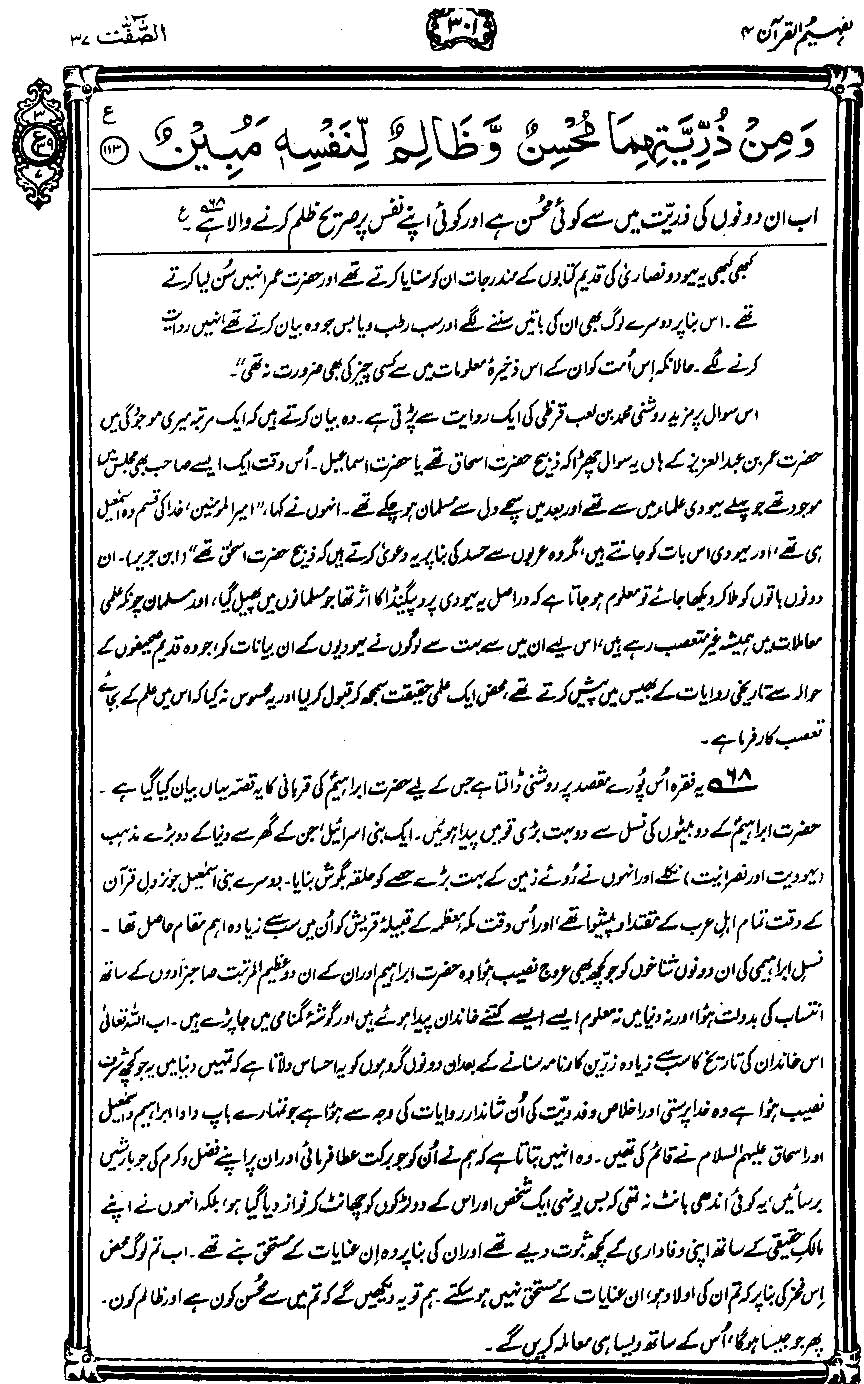 تفہیم القرآن ۴
۳۰۱
الصّٰفّٰت ۳۷
وَمِنْ ذُرِّيَّتِهِمَا مُحْسِنٌ وَّظَالِمٌ لِّنَفْسِهٖ مُبِيْنٌ ۱۱۳ ع
۳
ع ۳۹
۷
اب ان دونوں کی ذریّت میں سے کوئی محسن ہے اور کوئی اپنے نفس پر صریح ظلم کرنے والا ہے۶۸۔ ع
کبھی کبھی یہ یہود و نصاریٰ کی قدیم کتابوں کے مندرجات ان کو سنایا کرتے تھے اور حضرت عمر انہیں سُن لیا کرتے
تھے۔ اس بنا پر دوسرے لوگ بھی ان کی باتیں سننے لگے اور سب رطب و یابس جو وہ بیان کرتے تھے انہیں روایت
کرنے لگے۔ حالانکہ اِس اُمت کو ان کے اس ذخیرۂ معلومات میں سے کسی چیز کی بھی ضرورت نہ تھی"۔
اس سوال پر مزید روشنی محمد بن کعب قرظی کی ایک روایت سے پڑتی ہے۔ وہ بیان کرتے ہیں کہ ایک مرتبہ میری موجودگی میں
حضرت عمر بن عبدالعزیز کے ہاں یہ سوال چھڑا کہ ذبیح حضرت اسحاق تھے یا حضرت اسماعیل۔ اُس وقت ایک ایسے صاحب بھی مجلس میں
موجود تھے جو پہلے یہودی علماء میں سے تھے اور بعد میں سچے دل سے مسلمان ہو چکے تھے۔ انہوں نے کہا، "امیر المومنین، خدا کی قسم وہ اسمٰعیل
ہی تھے، اور یہودی اس بات کو جانتے ہیں، مگر وہ عربوں سے حسد کی بنا پر یہ دعویٰ کرتے ہیں کہ ذبیح حضرت اسحٰق تھے" (ابن جریر)۔ ان
دونوں باتوں کو ملا کر دیکھا جائے تو معلوم ہو جاتا ہے کہ دراصل یہ یہودی پروپیگنڈا کا اثر تھا جو مسلمانوں میں پھیل گیا، اور مسلمان چونکہ علمی
معاملات میں ہمیشہ غیر متعصب رہے ہیں، اس لیے ان میں سے بہت سے لوگوں نے یہودیوں کے ان بیانات کو، جو وہ قدیم صحیفوں کے
حوالہ سے تاریخی روایات کے بھیس میں پیش کرتے تھے، محض ایک علمی حقیقت سمجھ کر قبول کر لیا اور یہ محسوس نہ کیا کہ اس میں علم کے بجائے
تعصب کارفرما ہے۔
۶۸ یہ فقرہ اُس پُورے مقصد پر روشنی ڈالتا ہے جس کے لیے حضرت ابراہیمؑ کی قربانی کا یہ قصّہ یہاں بیان کیا گیا ہے۔
حضرت ابراہیمؑ کے دو بیٹوں کی نسل سے دو بہت بڑی قومیں پیدا ہوئیں۔ ایک بنی اسرائیل، جن کے گھر سے دنیا کے دو بڑے مذہب
(یہودیت اور نصرانیت) نکلے اور انہوں نے رُوئے زمین کے بہت بڑے حصے کو حلقہ بگوش بنایا۔ دوسرے بنی اسمٰعیل جو نزولِ قرآن
کے وقت تمام اہلِ عرب کے مقتدا و پیشوا تھے، اور اُس وقت مکہ معظمہ کے قبیلۂ قریش کو اُن میں سب سے زیادہ اہم مقام حاصل تھا۔
نسلِ ابراہیمی کی ان دونوں شاخوں کو جو کچھ بھی عروج نصیب ہؤا وہ حضرت ابراہیم اور ان کے ان دو عظیم المرتبت صاحبزادوں کے ساتھ
انتساب کی بدولت ہؤا، ورنہ دنیا میں نہ معلوم ایسے ایسے کتنے خاندان پیدا ہوئے ہیں اور گوشۂ گمنامی میں جا پڑے ہیں۔ اب اللہ تعالیٰ
اس خاندان کی تاریخ کا سب سے زیادہ زرّین کارنامہ سنانے کے بعد ان دونوں گروہوں کو یہ احساس دلاتا ہے کہ تمہیں دنیا میں یہ جو کچھ شرف
نصیب ہؤا ہے وہ خدا پرستی اور اخلاص و فدویّت کی اُن شاندار روایات کی وجہ سے ہؤا ہے جو تمہارے باپ دادا ابراہیم و اسمٰعیل
اور اسحاق علیہم السلام نے قائم کی تھیں۔ وہ انہیں بتاتا ہے کہ ہم نے اُن کو جو برکت عطا فرمائی اور ان پر اپنے فضل و کرم کی جو بارشیں
برسائیں، یہ کوئی اندھی بانٹ نہ تھی کہ بس یونہی ایک شخص اور اس کے دو لڑکوں کو چھانٹ کر نواز دیا گیا ہو، بلکہ انہوں نے اپنے
مالکِ حقیقی کے ساتھ اپنی وفاداری کے کچھ ثبوت دیے تھے اور ان کی بنا پر وہ اِن عنایات کے مستحق بنے تھے۔ اب تم لوگ محض
اِس فخر کی بنا پر کہ تم ان کی اولاد ہو، ان عنایات کے مستحق نہیں ہو سکتے۔ ہم تو یہ دیکھیں گے کہ تم میں سے محسن کون ہے اور ظالم کون۔
پھر جو جیسا ہوگا، اُس کے ساتھ ویسا ہی معاملہ کریں گے۔